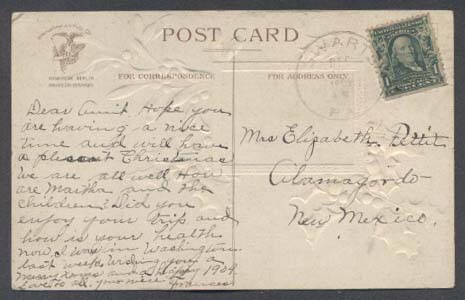 POST CARD
FOR CORRESPONDENCE
FOR ADDRESS ONLY
Dear Aunt Hope you
are having a nice
time and will have
a pleasant Christmas
we are all well How
are Martha and the
children? Did you
enjoy your trip and
how is your health
now, I was in Washington
last week. Wishing you a
merry xmas and a happy 1909.
Love to all, your niece
Frances
Mrs Elizabeth Pettit
Alamagordo
New Mexico.